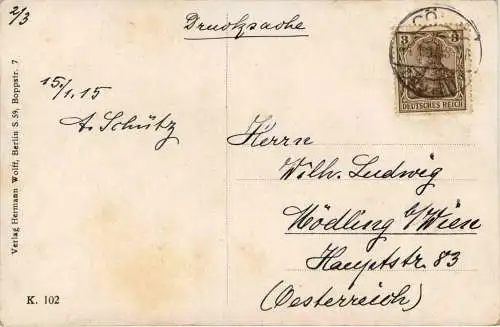 2/3
Drucksache
CÖ
3 3
DEUTSCHES REICH
15./1.15
A. Schütz
Herrn
Wilh. Ludwig
Mödling b/Wien
Hauptstr. 83
(Oesterreich)
Verlag Hermann Wolff, Berlin S. 59, Boppstr. 7
K. 102